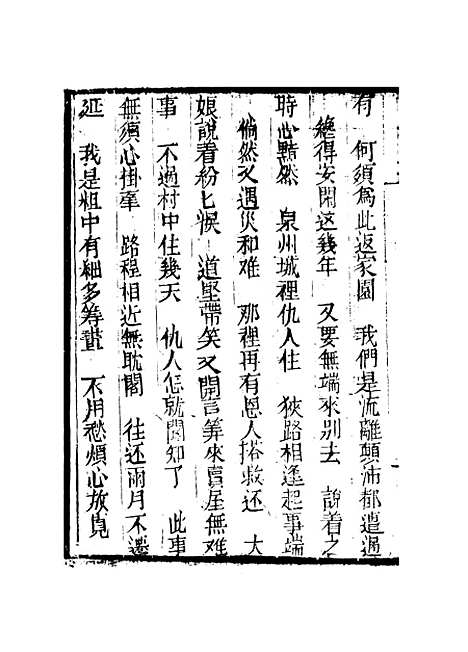 有 何須爲此返家園 我們是流離顛沛都遭過
纔得安閑这幾年 又要無端來別去 說着之
時心黯然 泉州城裡仇人住 狹路相逢起事端
倘然又遇災和难 那裡再有恩人搭救还 大
娘說着紛匕淚 道堅帶笑又開言筭來賣屋無难
事 不過村中住幾天 仇人怎就聞知了 此事
無須心掛牽 路程相近無耽閣 往还兩月不遷
延 我是粗中有細多筹畫 不用愁煩心放寬